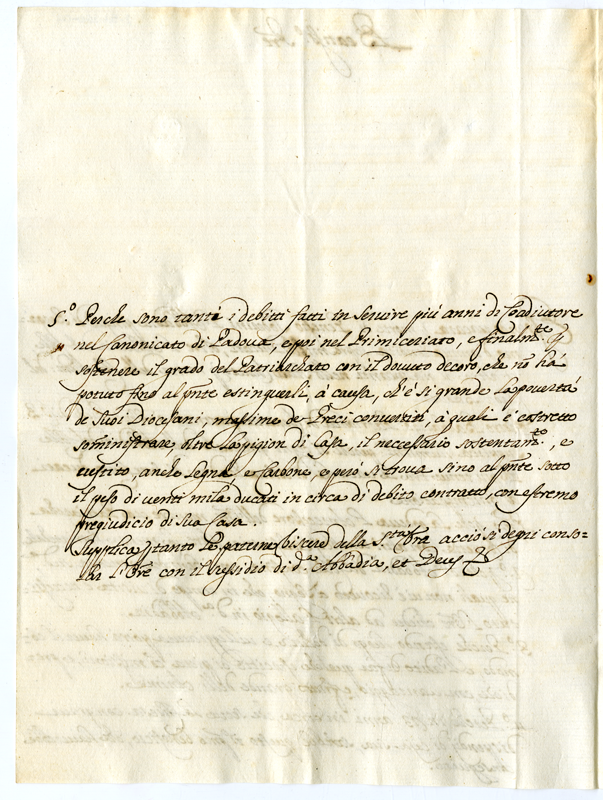 5.º Perche sono tanti i debitti fatti in servire più anni di Coadiutore
nel Canonicato di Padova, e poi nel Primiceriato, e finalm.te p
sostenere il grado del Patriarchato con il dovuto decoro, che nõ há
potuto fino al pñte estinguerli, à causa, ch'è si grande la povertà
de Suoi Diocesani, massime de Greci convertiti, à quali è costretto
somministrare oltre la pigion di Casa, il neccessario sostentam.to, e
vestito, anche Legna, e Carbone, e però si trova sino al pñte sotto
il peso di venti mila ducati in circa di debito contratto, con estremo
pregiudicio di Sua Casa.
Supplica p tanto le paterne viscere della S.ta Vra acciò si degni conso-
lar l'Ore con il sussidio di d.a Abbadia, et Deus &